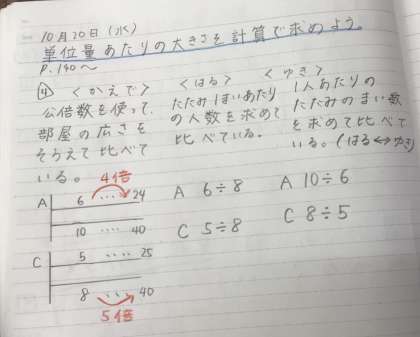 10月20日(水)
単位量あたりの大きさを計算で求めよう。
P.140〜
④ <かえで>
公倍数を使って、
部屋の広さを
そろえて比べて
いる。
<はる>
たたみ1まいあたり
の人数を求めて
比べている。
<ゆき>
1人あたりの
たたみのまい数
を求めて比べて
いる。(はる↔ゆき)
4倍
A 6 ‥‥ 24
10 ‥‥ 40
C 5 ‥‥ 25
8 ‥‥ 40
5倍
A 6÷8
C 5÷8
A 10÷6
C 8÷5